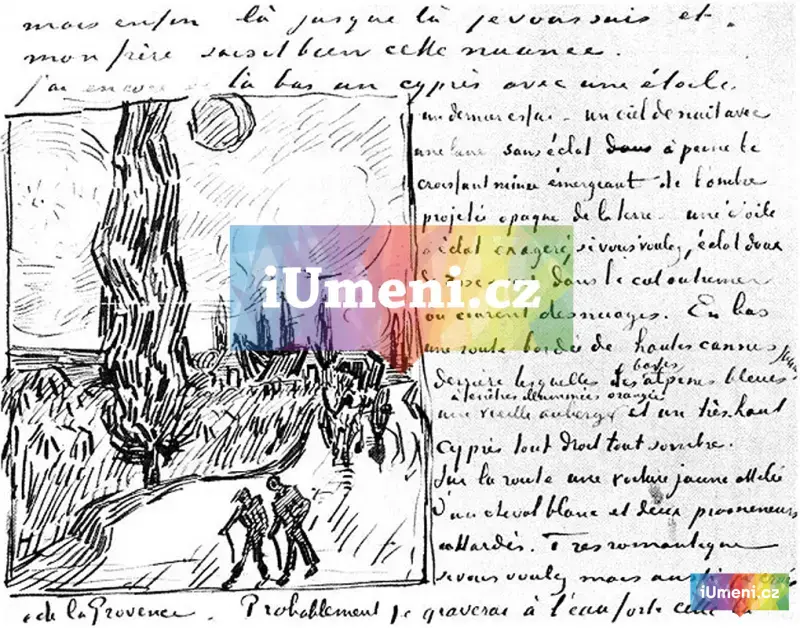 mais enfin là jusque là je vous suis et
mon frère saisit bien cette nuance.
j'ai encore de là bas un cyprès avec une étoile.
un dernier essai – un ciel de nuit avec
une lune sans éclat dans à peine le
croissant mince émergeant de l'ombre
projetée opaque de la terre – une étoile
à éclat exagéré, si vous voulez, éclat doux
dans le ciel outremer
où courent des nuages. En bas
une route bordée de hautes cannes
derrière lesquelles les basses alpines bleues
à fenêtres illuminées orangées
une vieille auberge et un très haut
cyprès tout droit tout sombre.
Sur la route une voiture jaune attelée
d'un cheval blanc et deux promeneurs
attardés. Très romantique
si vous voulez mais aussi
de la Provence. Probablement je graverai à l'eau forte celle là
iUmeni.cz
iUmeni.cz